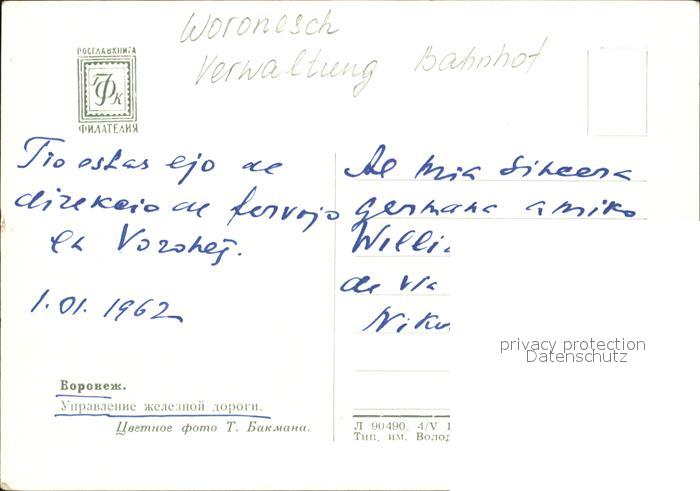 Woronesch
Verwaltung Bahnhof
РОСГЛАВКНИГА
ФК
ФИЛАТЕЛИЯ
Tio estas ejo de
direkcio de fervojo
en Voroneĵ.
1.01.1962
Al mia sincera
germana amiko
Willi
de via
Niko
privacy protection
Datenschutz
Воронеж.
Управление железной дороги.
Цветное фото Т. Бакмана.
Л 90490. 4/V 1
Тип. им. Волод